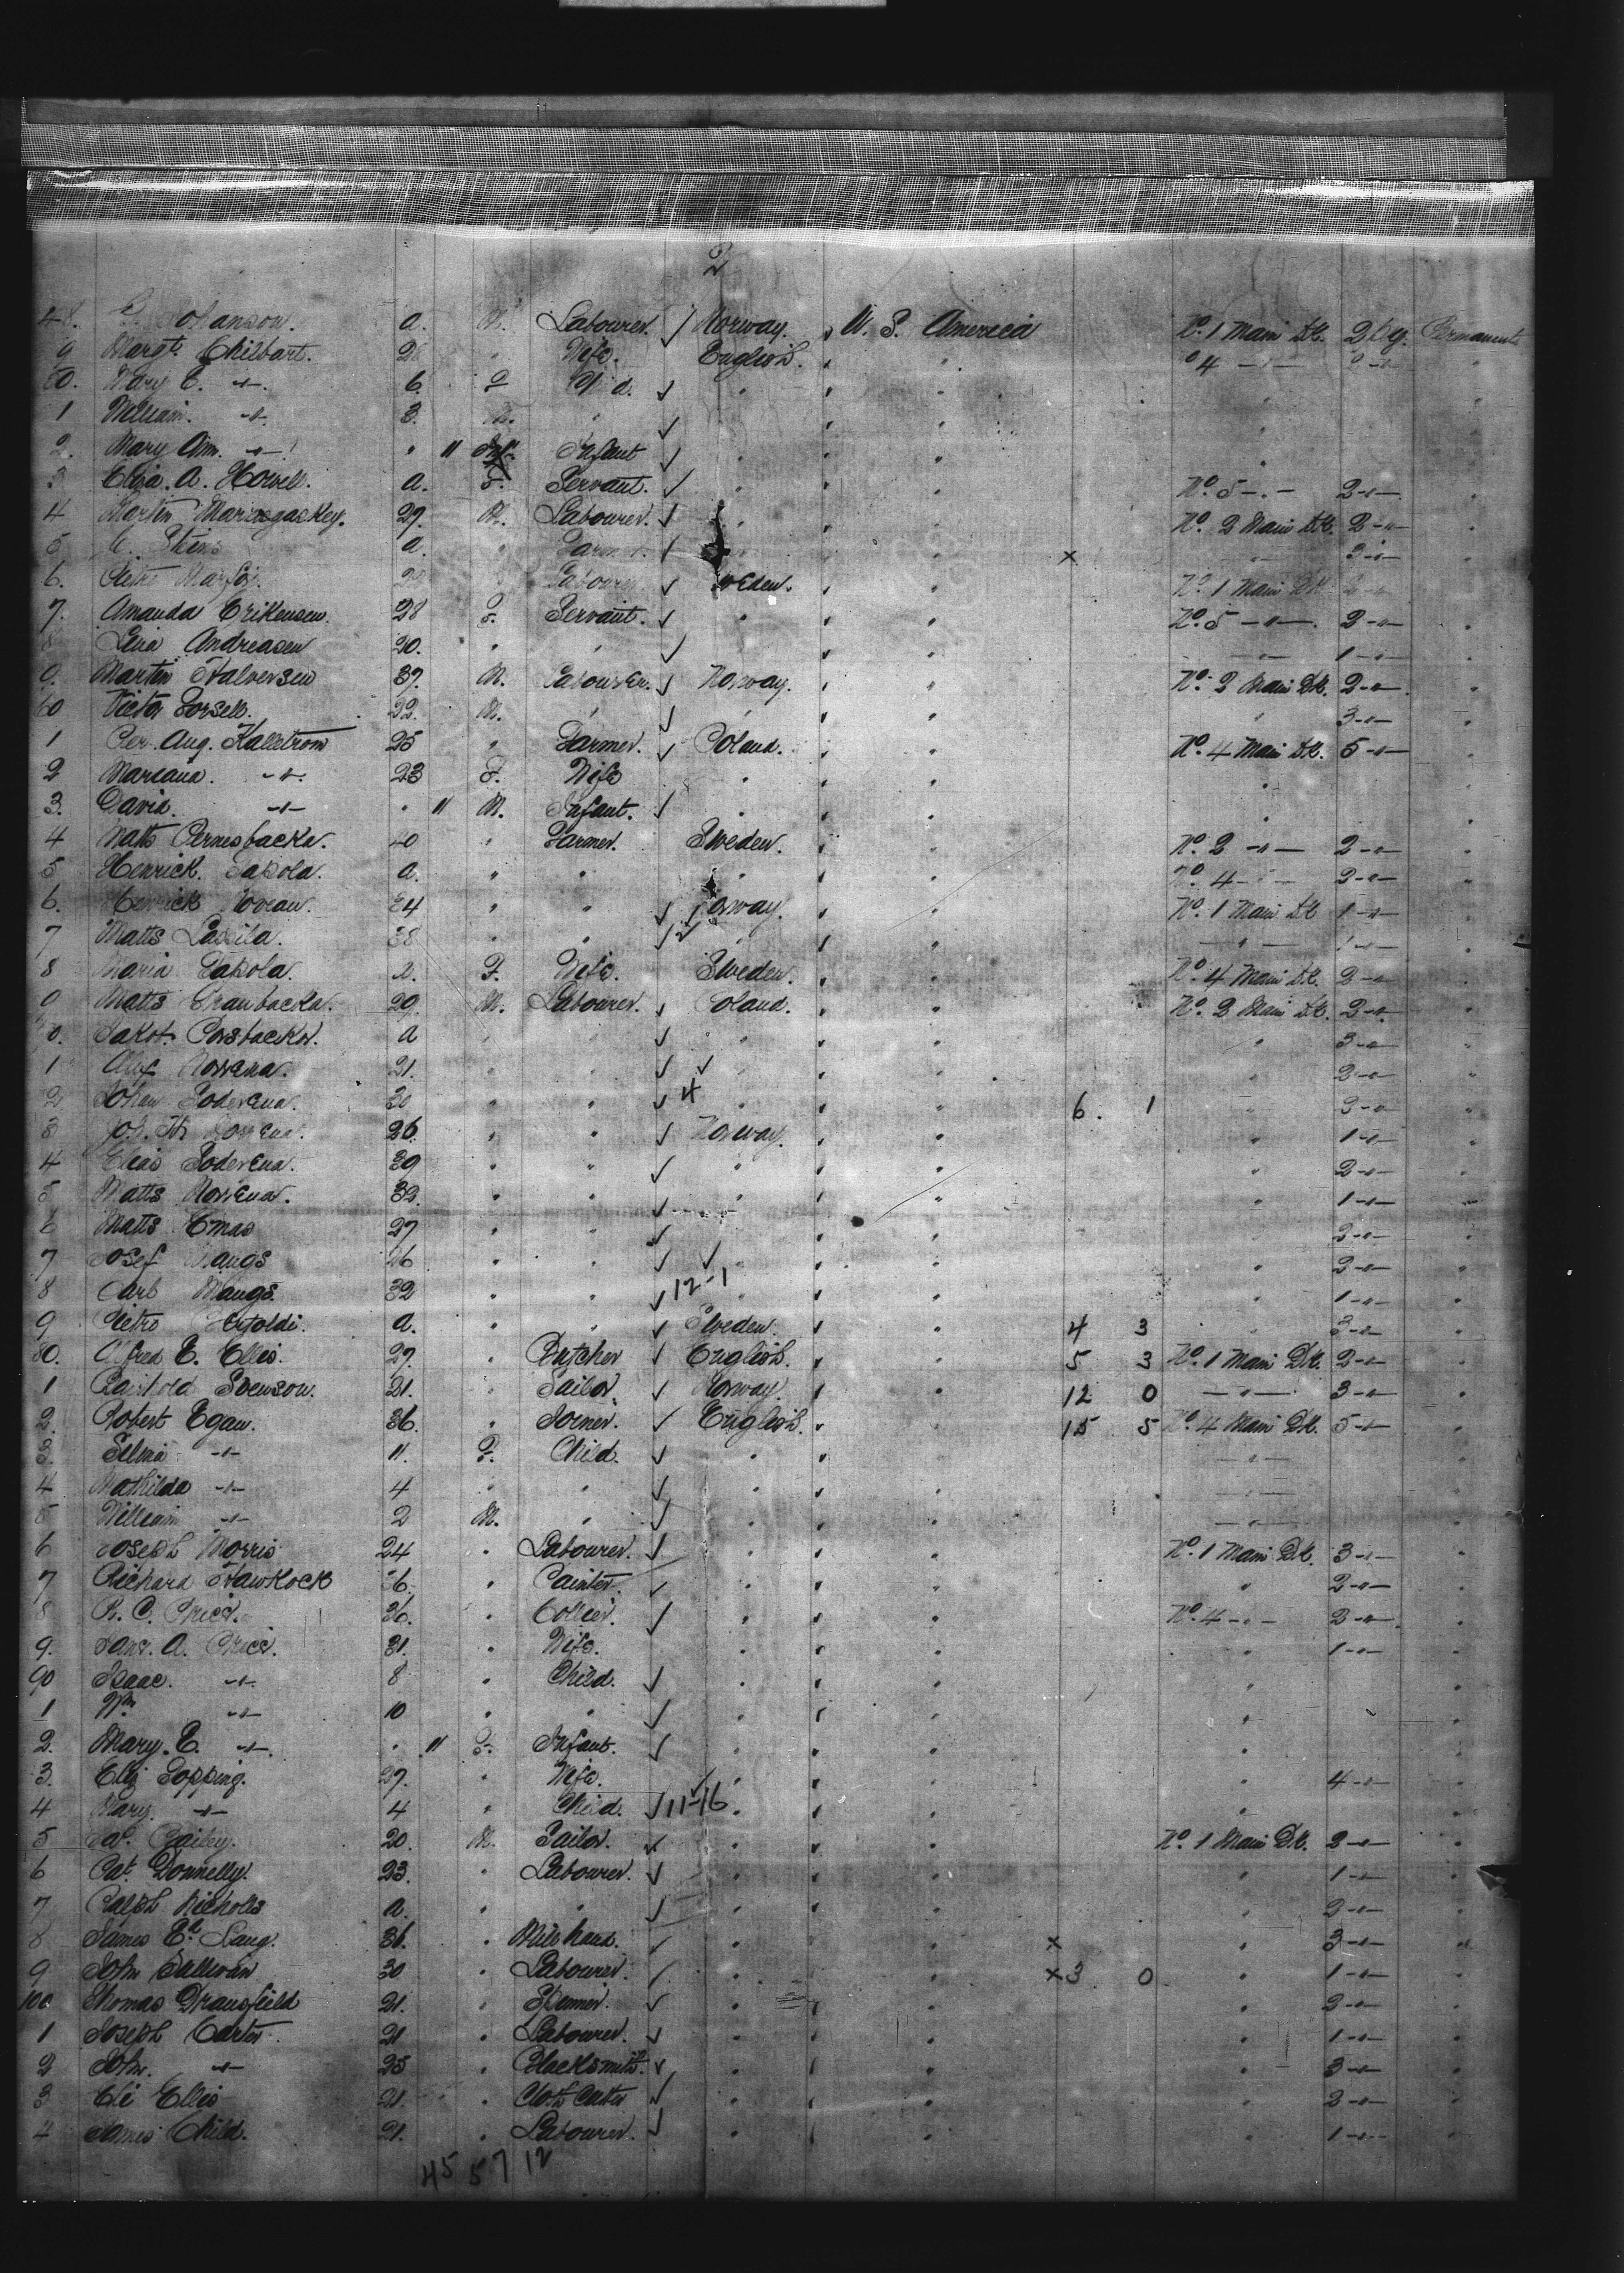 2
48. Johanson. a. M. Labourer. Norway. U. S. America No. 1 Main Dk. 2 bg. Permanent
9 Margt. Chilbart. Wife. English. " " 4 -"- "
50. Mary E. -"- 6. F Child. " " "
1 William. -"- 3. M. " " " "
2. Mary Ann. -"- " 11 Inf. Infant " " "
3 Eliza. A. Howell. a. F. Servant. " " No. 5 -"- 2 -"-
4 Martin 29. M. Labourer. " " No. 2 Main Dk. 2 -"-
5 a. " Farmer. " " x -"- 3 -"-
6. Pietro Labourer Sweden. " " No. 1 Main Dk. 2 -"-
7. Amanda Erikensen. 28 F. Servant. " " " No. 5 -"- 2 -"-
8 Lena Andreasen 20. " " " " -"- 1 -"-
9. Martin Halversen 37. M. Labourer. Norway. " " No. 2 Main Dk. 2 -"-
60 Victor Forsell. 22. M. " " " " 3 -"-
1 Per. Aug. Kallstrom 25 " Farmer. Poland. " " No. 4 Main Dk. 5 -"-
2 Mariana. -"- 23 F. Wife " " " "
3. David. -"- " 11 M. Infant. " " " "
4 Matts Pernesbacka. 40 " Farmer. Sweden. " " No. 2 -"- 2 -"-
5 Henrick. Sakola. a. " " " " " No. 4 -"- 2 -"-
6. Henrick 24 " " Norway. " " No. 1 Main Dk 1 -"-
7 Matts Lassila. 38 " " 2 " " -"- 1 -"-
8 Maria Sakola. a. F. Wife. Sweden. " " No. 4 Main Dk. 2 -"-
9 Matts Granbacka. 29. M. Labourer. Poland. " " No. 2 Main Dk. 2 -"-
70. Jakob. a " " " " " " 3 -"-
1 21. " " " " " " 2 -"-
2 Johan Soderena. 30 " " 4 " " 6. 1 " 3 -"-
3 26. " " Norway. " " " 1 -"-
4 Elias Soderena. 39 " " " " " " 2 -"-
5 Matts 32. " " " " " " 1 -"-
6 Matts Emas 27 " " " " " " 3 -"-
7 Josef Mangs 26 " " " " " " 2 -"-
8 Carl Mangs. 32 " " 12-1 " " " 1 -"-
9 Pietro a. " " Sweden. " " 4 3 " 3 -"-
80. Alfred E. Ellis. 27. " Butcher English. " " 5 3 No. 1 Main Dk. 2 -"-
1 Rainhold Svenson. 21. " Sailor. Norway. " " 12 0 -"- 3 -"-
2. Robert Egan. 36. " Joiner. English. " " 15 5 No. 4 Main Dk. 5 -"-
3. Selina -"- 11. F. Child. " " -"-
4 Mathilda -"- 4 " " " " -"-
5 William -"- 2 M. " " " -"-
6 Joseph Morris 24 " Labourer. " " " No. 1 Main Dk. 3 -"-
7 Richard Hawkock 36. " Painter. " " " " 2 -"-
8 R. C. Price. 36. " Collier. " " " No. 4 -"- 2 -"-
9. Jane. A. Price. 31. " Wife. " " " " 1 -"-
90 Isaac. -"- 8 " Child. " " " "
1 Wm -"- 10 " " " " " "
2. Mary. E. -"- " 11 F. Infant. " " " "
3. Eliz Topping. 27. " Wife. " " " " 4 -"-
4 Mary. -"- 4 " Child. 11-16 " " "
5 Bailey. 20. M. Sailor. " " " No. 1 Main Dk. 2 -"-
6 Pat. Donnelly. 23. " Labourer. " " " " 1 -"-
7 Ralph Nicholls a. " " " " " " 2 -"-
8 James Ed. Lang. 31. " Mill hand. " " " x " 3 -"-
9 John Sullivan 30 " Labourer. " " " x 3 0 " 1 -"-
100 Thomas Dransfield 21. " Spinner. " " " " 2 -"-
1 Joseph Carter. 21 " Labourer. " " " " 1 -"-
2 John. -"- 25 " Blacksmith. " " " " 3 -"-
3 Eli Ellis 21. " Cloth Cutter " " " " 2 -"-
4 James Child. 21. " Labourer. " " " " 1 -"-
45 57 12